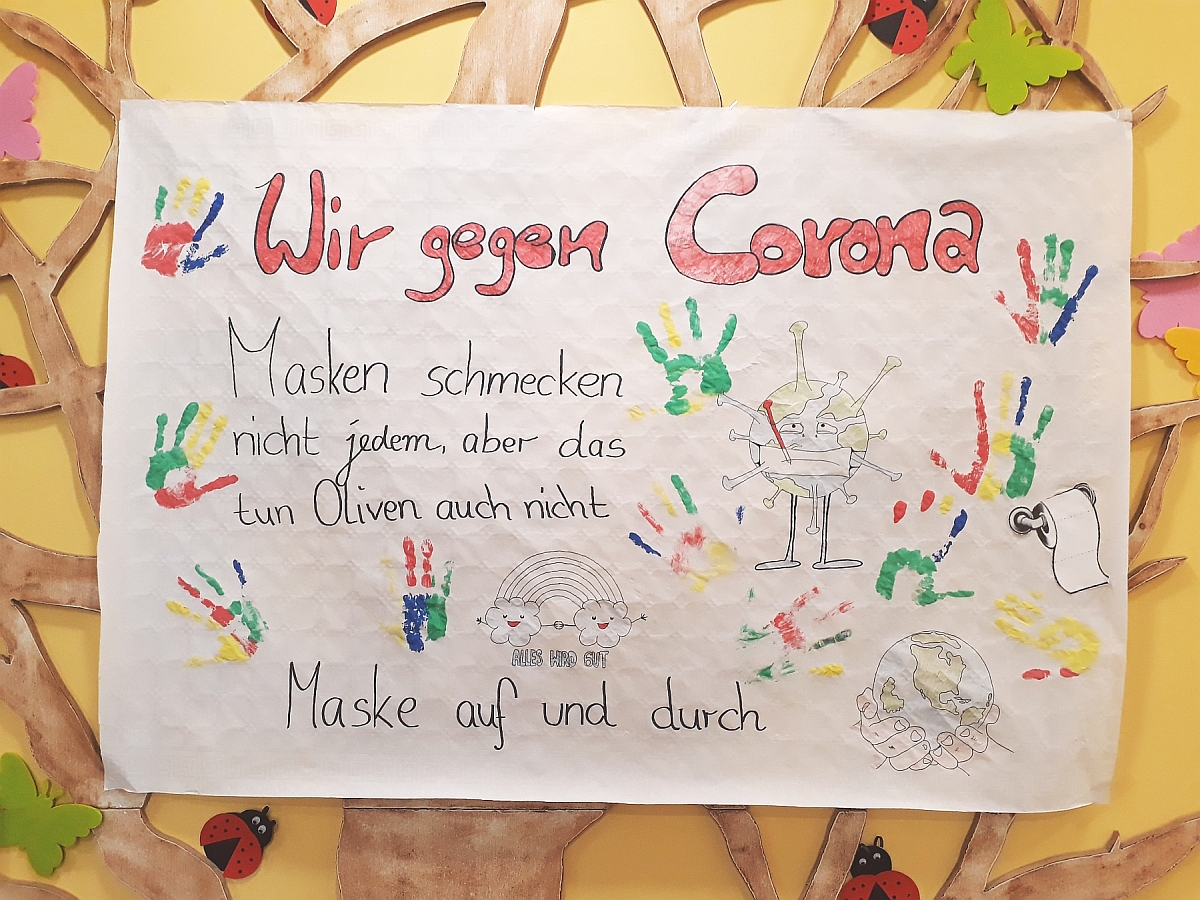 Wir gegen Corona
Masken schmecken
nicht jedem, aber das
tun Oliven auch nicht
ALLES WIRD GUT
Maske auf und durch